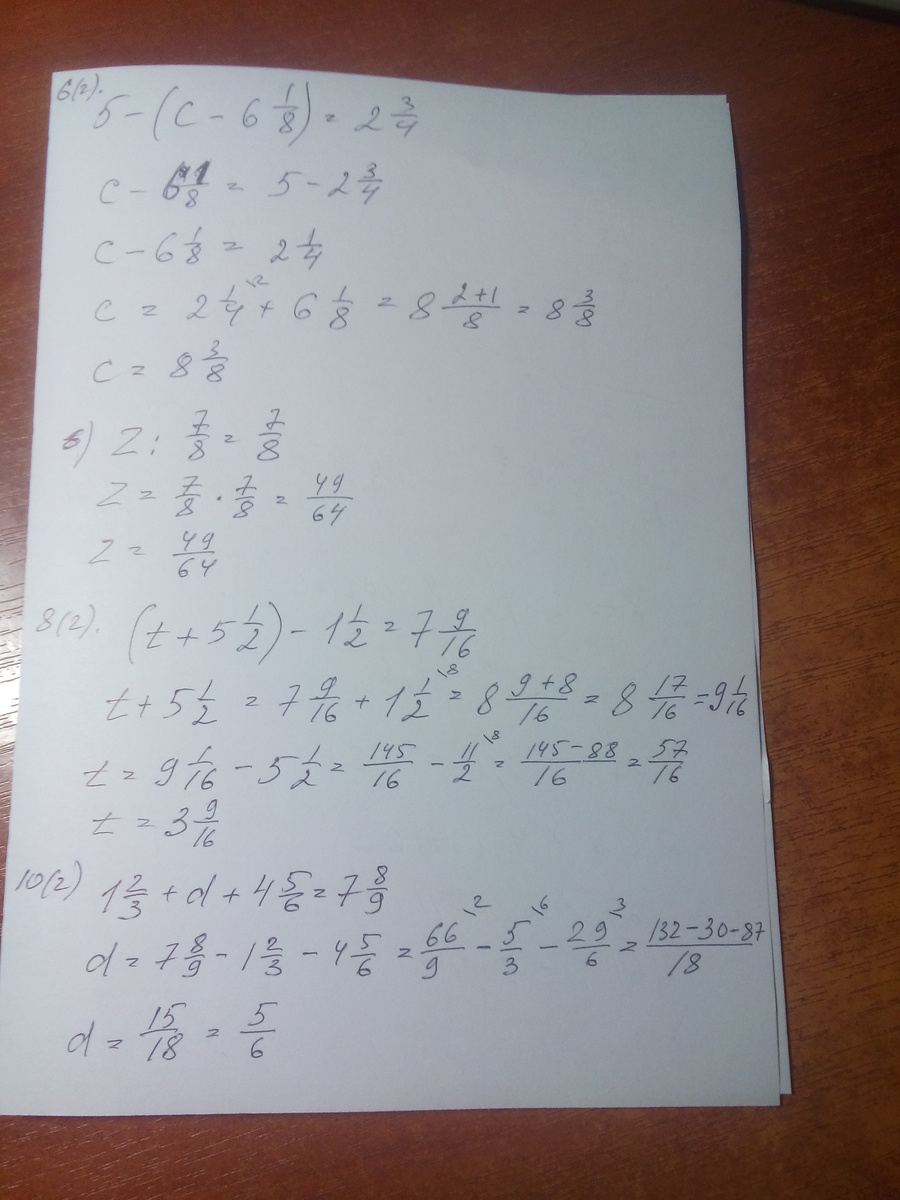 6(2).
5 - (c - 6 1/8) = 2 3/4
c - 6 1/8 = 5 - 2 3/4
c - 6 1/8 = 2 1/4
c = 2 1/4 \2 + 6 1/8 = 8 2+1/8 = 8 3/8
c = 8 3/8
б) z : 7/8 = 7/8
z = 7/8 · 7/8 = 49/64
z = 49/64
8(2). (t + 5 1/2) - 1 1/2 = 7 9/16
t + 5 1/2 = 7 9/16 + 1 1/2 \8 = 8 9+8/16 = 8 17/16 = 9 1/16
t = 9 1/16 - 5 1/2 = 145/16 - 11/2 \8 = 145-88/16 = 57/16
t = 3 9/16
10(2) 1 2/3 + d + 4 5/6 = 7 8/9
d = 7 8/9 - 1 2/3 - 4 5/6 = 66/9 \2 - 5/3 \6 - 29/6 \3 = 132-30-87/18
d = 15/18 = 5/6